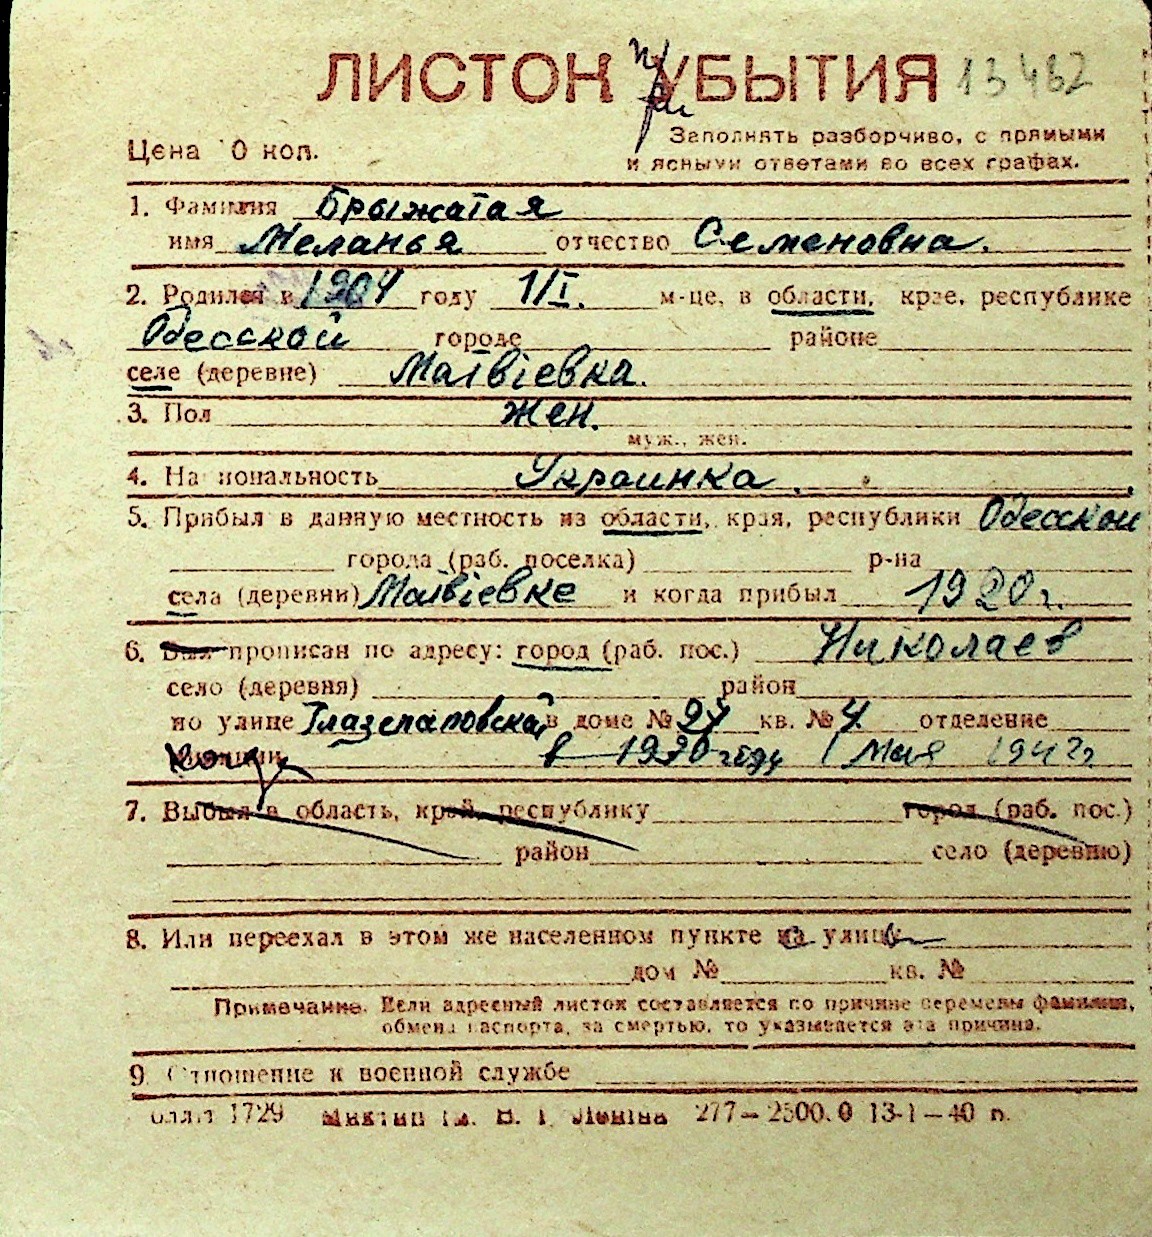 ЛИСТОК УБЫТИЯ при 13462
Цена 10 коп.
Заполнять разборчиво, с прямыми
и ясными ответами во всех графах.
1. Фамилия Брыжатая
имя Меланья отчество Семеновна.
2. Родился в 1904 году 1/I. м-це, в области, крае, республике
Одесской городе районе
селе (деревне) Матвіевка.
3. Пол жен.
муж., жен.
4. Национальность Украинка.
5. Прибыл в данную местность из области, края, республики Одесской
города (раб. поселка) р-на
села (деревни) Матвіевке и когда прибыл 1920 г.
6. Был прописан по адресу: город (раб. пос.) Николаев
село (деревня) район
по улице в доме № кв. № 4 отделение
милиции Когда в году 1 Мая 194 г
7. Выбыл в область, край, республику город (раб. пос.)
район село (деревню)
8. Или переехал в этом же населенном пункте на улицу
дом № кв. №
Примечание. Если адресный листок составляется по причине перемены фамилии,
обмена паспорта, за смертью, то указывается эта причина.
9. Отношение к военной службе
1729 В. І. Леніна 277—2500.0 13-1—40 п.